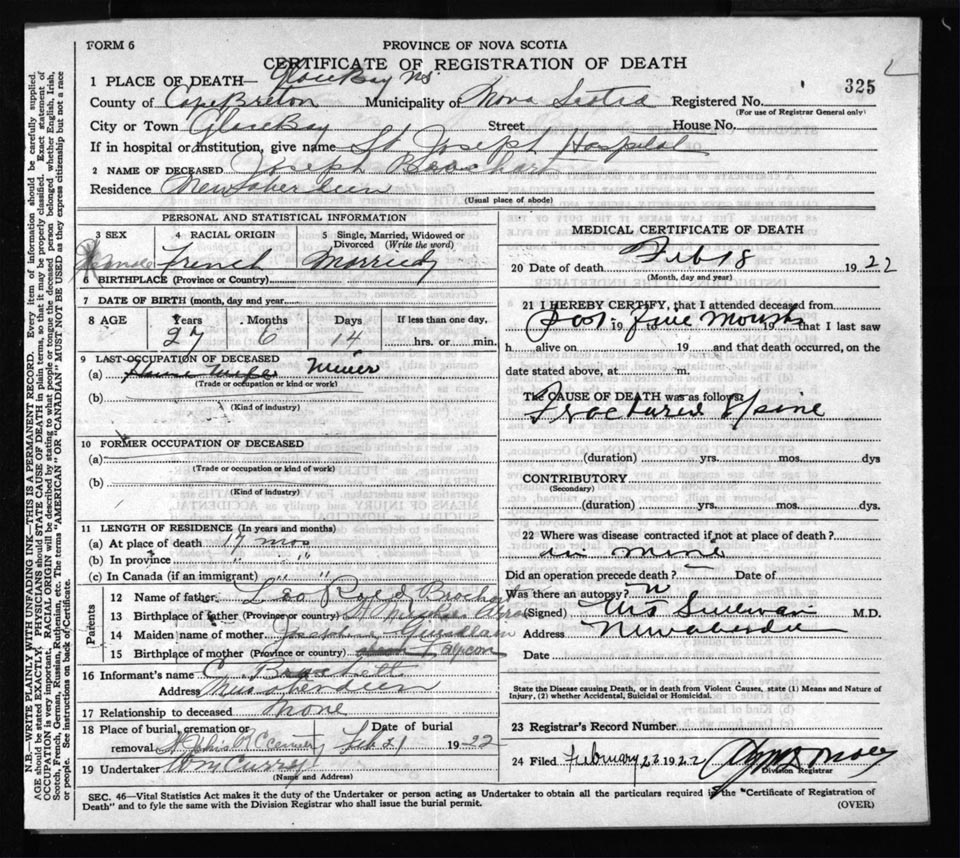 FORM 6
PROVINCE OF NOVA SCOTIA
CERTIFICATE OF REGISTRATION OF DEATH
325
1 PLACE OF DEATH— Glace Bay NS
County of Cape Breton Municipality of Nova Scotia Registered No.
(For use of Registrar General only)
City or Town Glace Bay Street House No.
If in hospital or institution, give name St Joseph Hospital
2 NAME OF DECEASED Joseph
Residence New Aberdeen
(Usual place of abode)
PERSONAL AND STATISTICAL INFORMATION
3 SEX 4 RACIAL ORIGIN 5 Single, Married, Widowed or Divorced (Write the word)
French Married
6 BIRTHPLACE (Province or Country)
7 DATE OF BIRTH (month, day and year
8 AGE Years Months Days If less than one day,
27 6 14 hrs. or min.
9 LAST OCCUPATION OF DECEASED
(a) House Wife Miner
(Trade or occupation or kind or work)
(b)
(Kind of industry)
10 FORMER OCCUPATION OF DECEASED
(a)
(Trade or occupation or kind or work)
(b)
(Kind of industry)
11 LENGTH OF RESIDENCE (In years and months)
(a) At place of death 17 mos
(b) In province " "
(c) In Canada (if an immigrant) " "
Parents
12 Name of father
13 Birthplace of father (Province or country)
14 Maiden name of mother
15 Birthplace of mother (Province or country)
16 Informant's name
Address New Aberdeen
17 Relationship to deceased None
18 Place of burial, cremation or removal Date of burial Feb 21 1922
19 Undertaker Wm Curry
(Name and Address)
MEDICAL CERTIFICATE OF DEATH
20 Date of death Feb 18 1922
(Month, day and year)
21 I HEREBY CERTIFY, that I attended deceased from
19 to five months 19 that I last saw
h alive on 19 and that death occurred, on the
date stated above, at m.
The CAUSE OF DEATH was as follows:
Fractured Spine
(duration) yrs. mos. dys
CONTRIBUTORY
(Secondary)
(duration) yrs. mos. dys.
22 Where was disease contracted if not at place of death?
in mine
Did an operation precede death? Date of
Was there an autopsy? N
(Signed) Sullivan M.D.
Address New Aberdeen
Date
State the Disease causing Death, or in death from Violent Causes, state (1) Means and Nature of
Injury, (2) whether Accidental, Suicidal or Homicidal.
23 Registrar's Record Number
24 Filed February 22 1922
Division Registrar
SEC. 46—Vital Statistics Act makes it the duty of the Undertaker or person acting as Undertaker to obtain all the particulars required in the "Certificate of Registration of
Death" and to fyle the same with the Division Registrar who shall issue the burial permit.
(OVER)
N.B.—WRITE PLAINLY WITH UNFADING INK—THIS IS A PERMANENT RECORD. Every item of information should be carefully supplied.
AGE should be stated EXACTLY. PHYSICIANS should STATE CAUSE OF DEATH in plain terms, so that it may be properly classified. Exact statement of
OCCUPATION is very important. RACIAL ORIGIN will be described by stating to what people or tongue the deceased person belonged whether English, Irish,
Scotch, French, German, Russian, Ruthenian, etc. The terms "AMERICAN" OR "CANADIAN" MUST NOT BE USED as they express citizenship but not a race
or people. See instructions on back of Certificate.